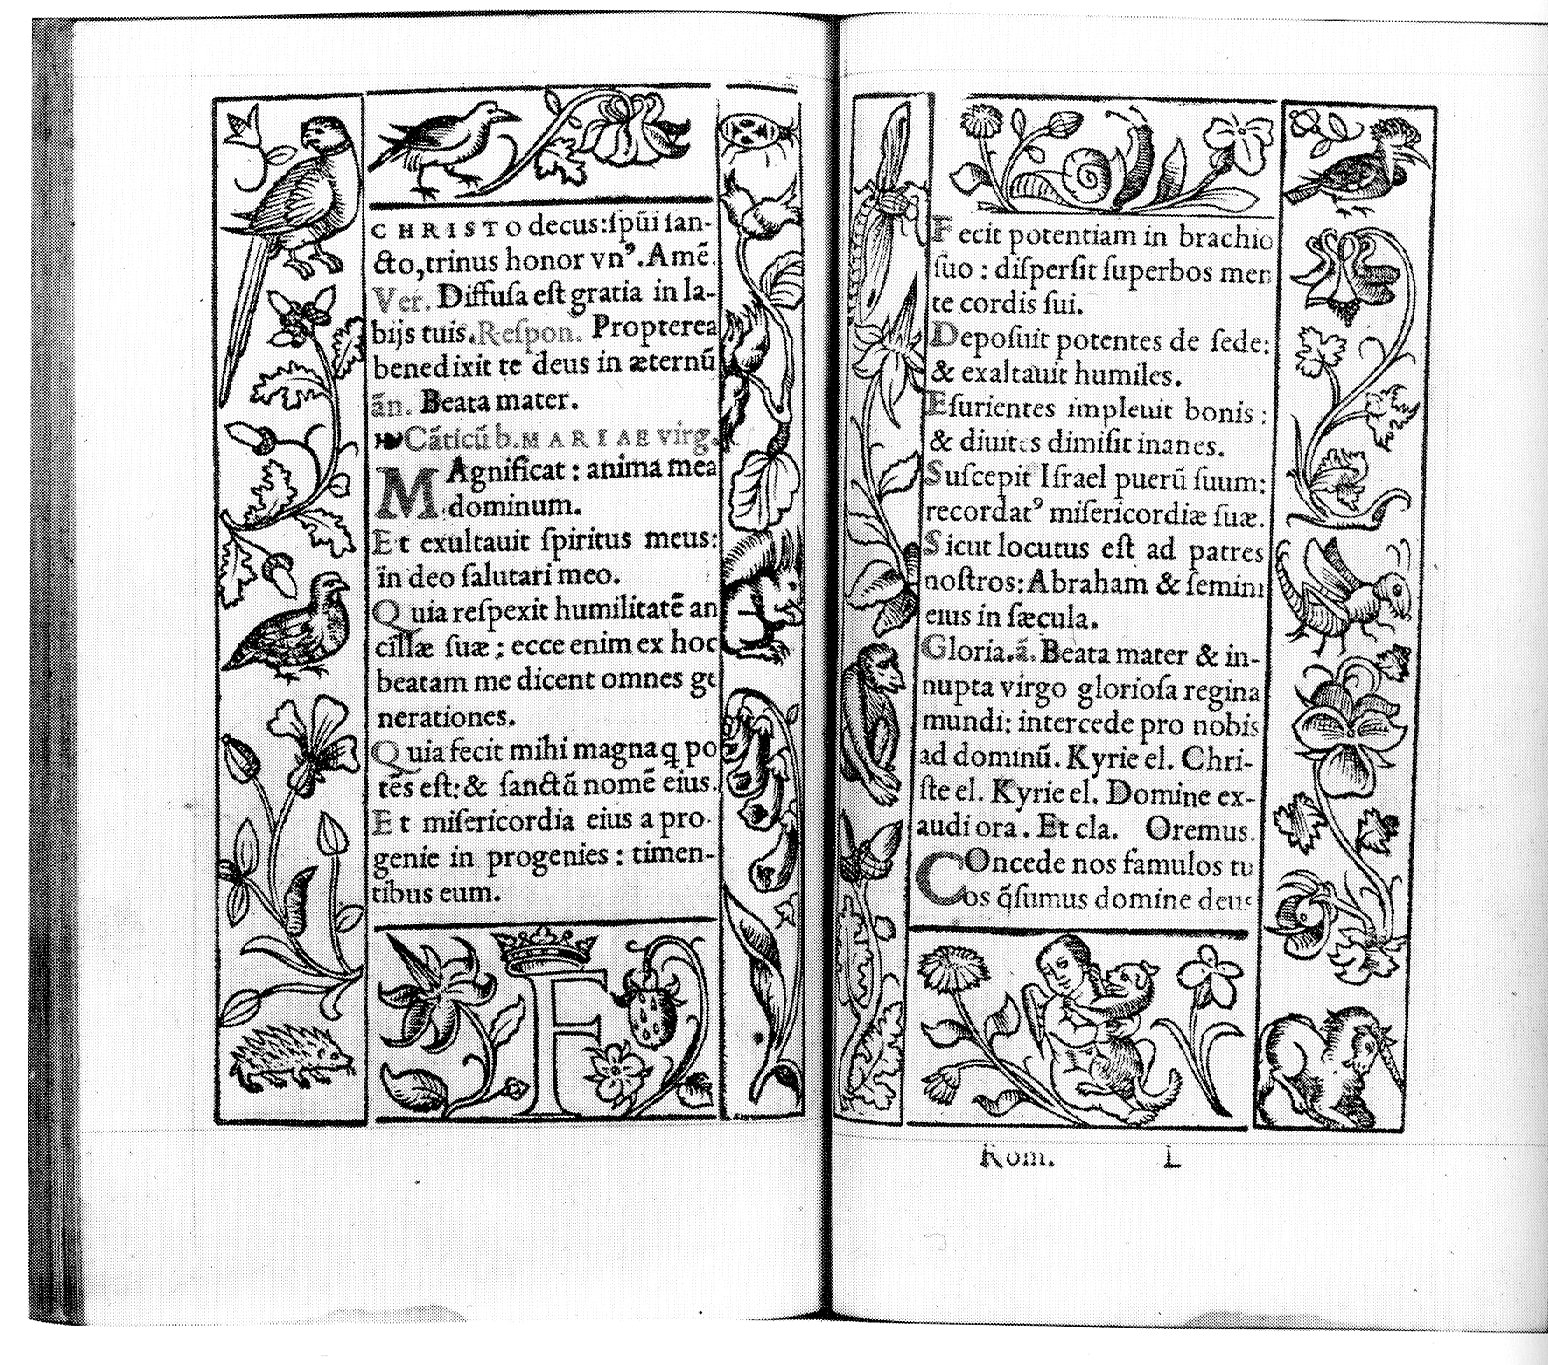 CHRISTO decus:ſpũi ſan-
cto,trinus honor vnꝰ.Amẽ.
Ver. Diffuſa eſt gratia in la-
bijs tuis.Reſpon. Propterea
benedixit te deus in æternũ
ãn. Beata mater.
Cãticũ b.MARIAE virg.
MAgnificat : anima mea
dominum.
Et exultauit ſpiritus meus:
in deo ſalutari meo.
Quia reſpexit humilitatẽ an
cillæ ſuæ : ecce enim ex hoc
beatam me dicent omnes ge
nerationes.
Quia fecit mihi magna q po
tẽs eſt:& ſanctũ nomẽ eius.
Et miſericordia eius a pro-
genie in progenies : timen-
tibus eum.
F
Fecit potentiam in brachio
ſuo : diſperſit ſuperbos men
te cordis ſui.
Depoſuit potentes de ſede:
& exaltauit humiles.
Eſurientes impleuit bonis :
& diuites dimiſit inanes.
Suſcepit Iſrael puerũ ſuum:
recordatꝰ miſericordiæ ſuæ.
Sicut locutus eſt ad patres
noſtros: Abraham & ſemini
eius in ſæcula.
Gloria.ã. Beata mater & in-
nupta virgo glorioſa regina
mundi: intercede pro nobis
ad dominũ. Kyrie el. Chri-
ſte el. Kyrie el. Domine ex-
audi ora. Et cla. Oremus.
COncede nos famulos tu
os q̃ſumus domine deus
Rom. L